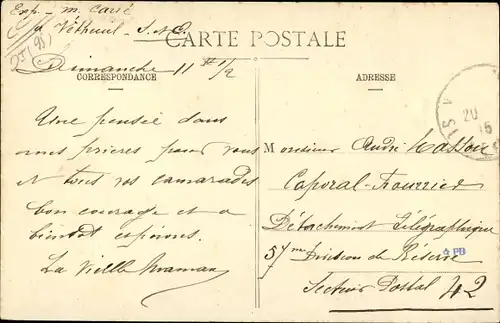 Exp - m. Carré
Vétheuil - S. & O.
CARTE POSTALE
Dimanche 11 h 1/2
CORRESPONDANCE
ADRESSE
Une pensée dans
mes prières pour vous
et tous vos camarades
bon courage et a
bientot espérons.
La Vieille Maman
Monsieur André
Caporal-Fourrier
Détachement Télégraphique
57me Division de Réserve
Secteur Postal 42
20
15
PB